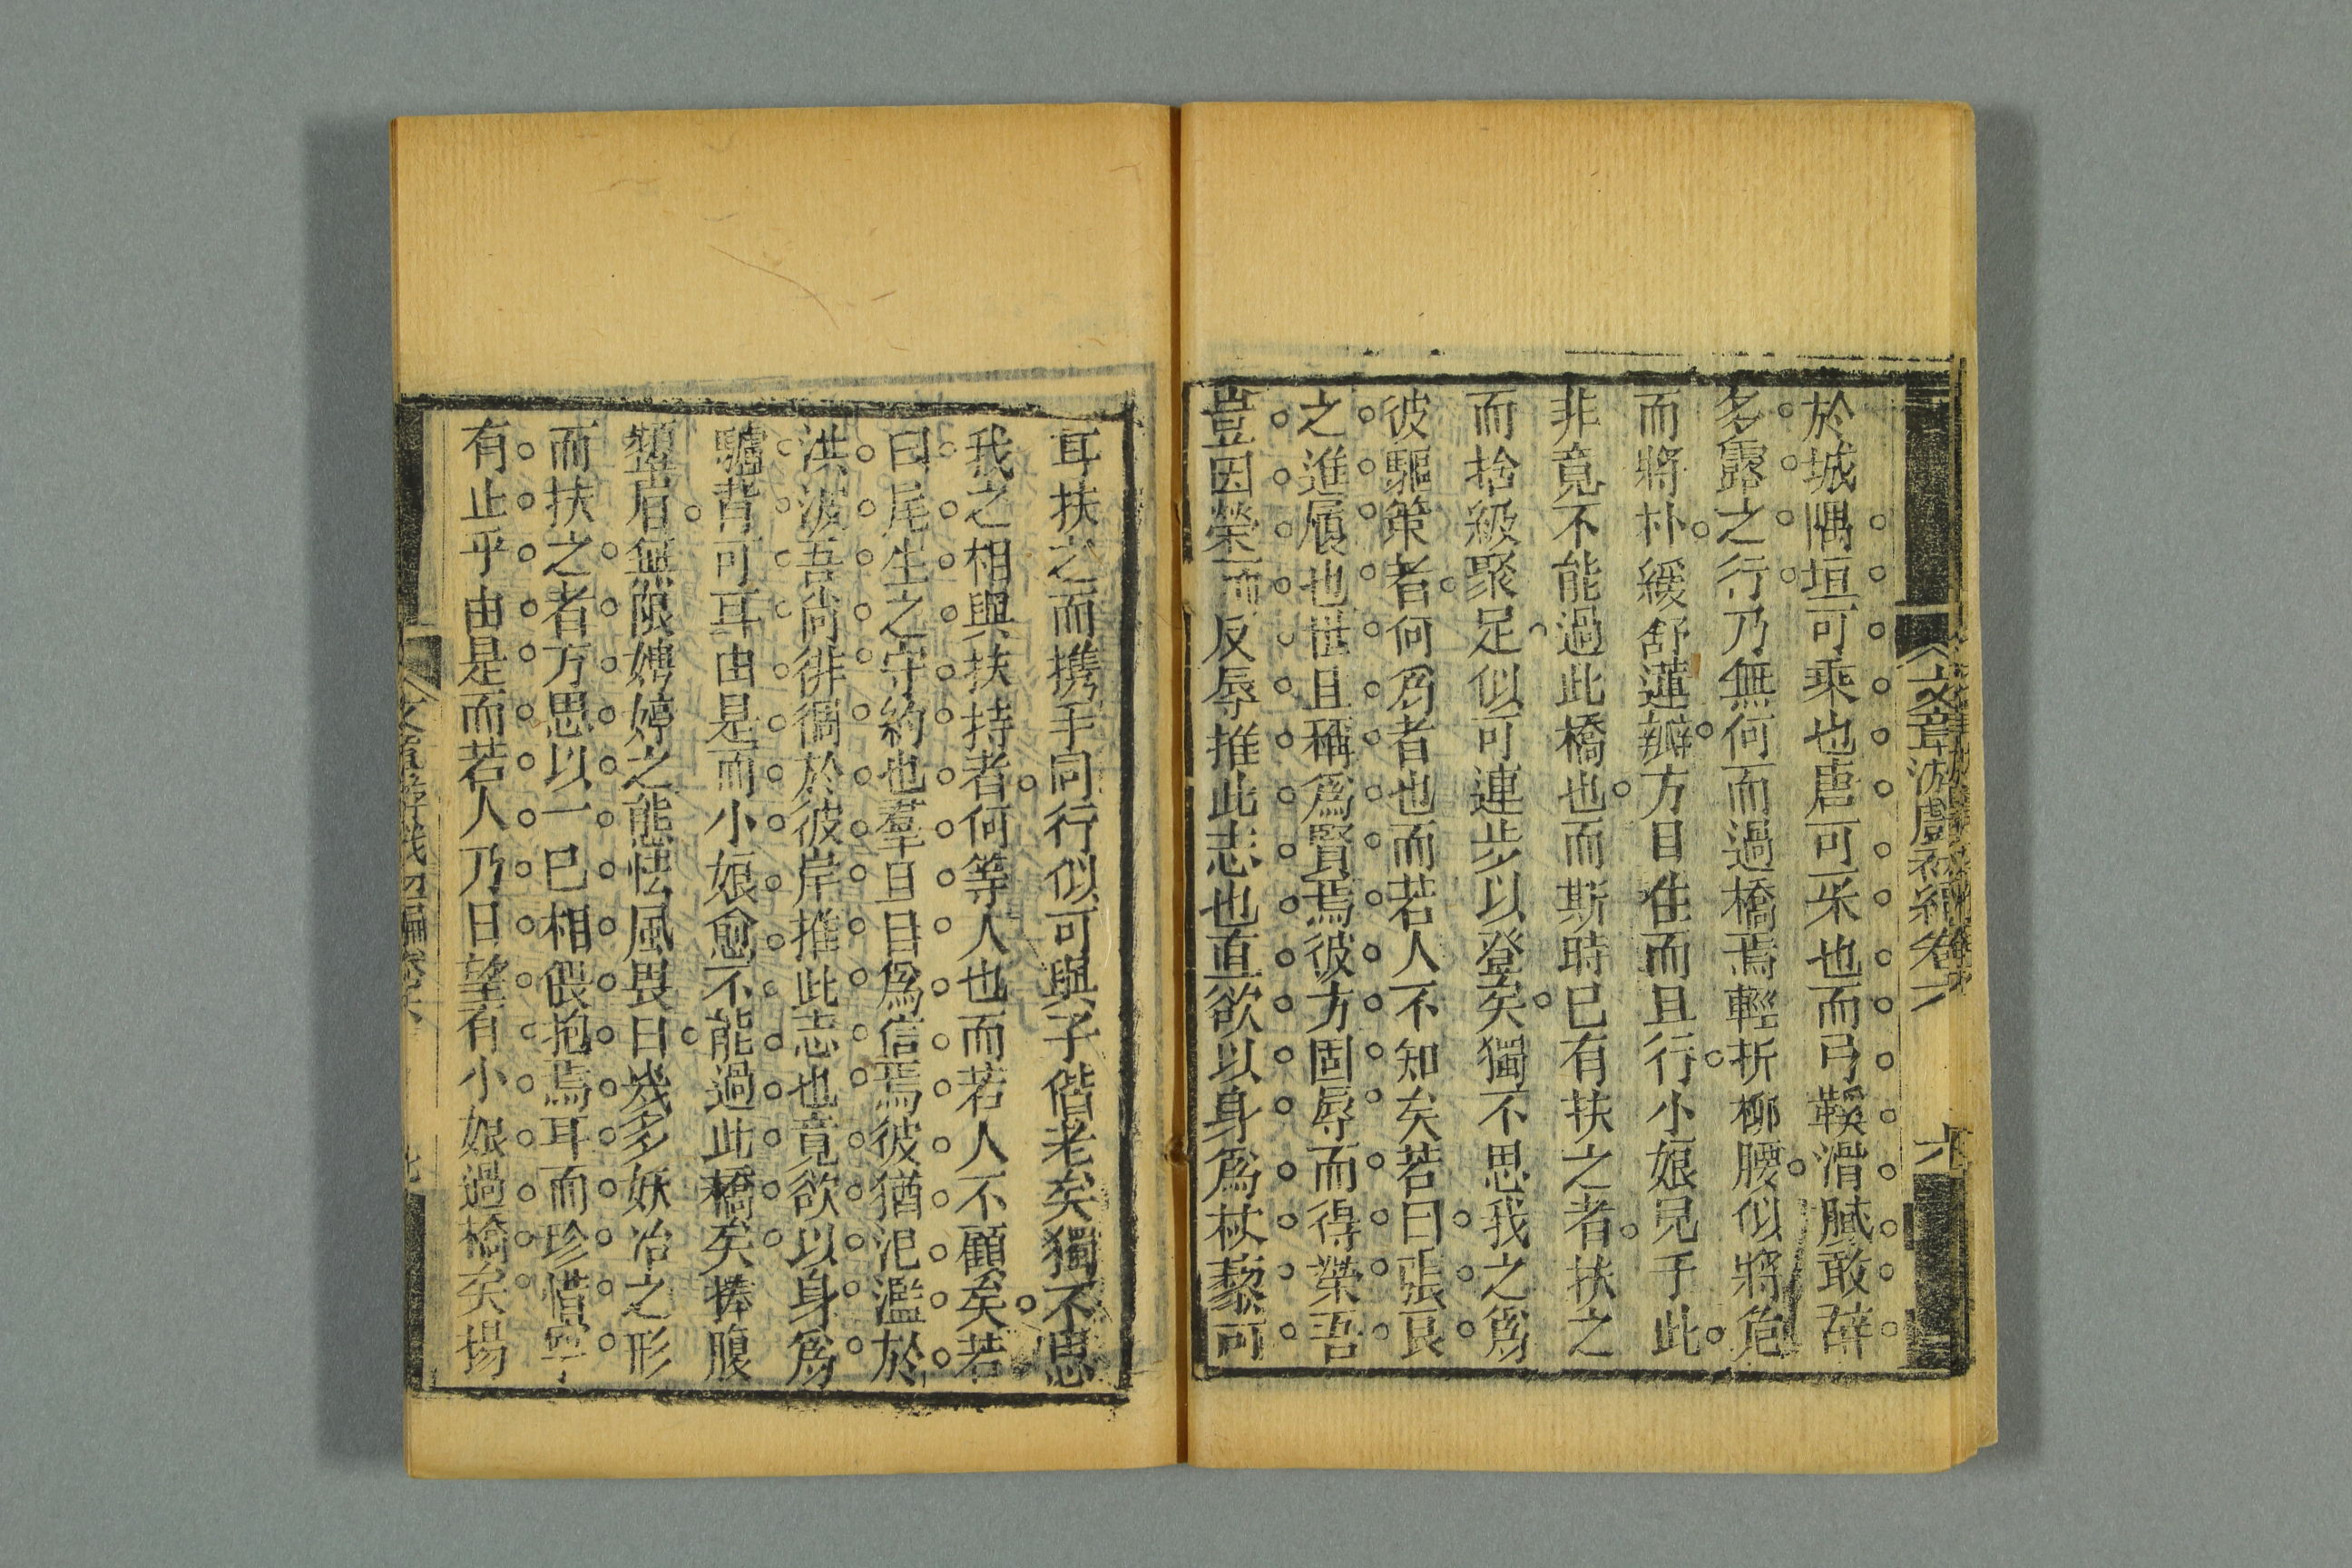 文章游戲初編卷六
六
於城隅垣可乘也唐可采也而弓鞵滑膩敢辭
多露之行乃無何而過橋焉輕折柳腰似將危
而將朴緩舒蓮瓣方目住而且行小娘兒手此
非竟不能過此橋也而斯時已有扶之者扶之
而捨級聚足似可連步以登矣獨不思我之爲
彼驅策者何爲者也而若人不知矣若曰張良
之進履也世且稱爲賢焉彼方固辱而得榮吾
豈因榮而反辱推此志也直欲以身爲杖藜可
耳扶之而携手同行似可與子偕老矣獨不思
我之相與扶持者何等人也而若人不顧矣若
曰尾生之守約也羣且目爲信焉彼猶汜濫於
洪波吾尚徘徊於彼岸推此志也竟欲以身爲
驢背可耳由是而小娘愈不能過此橋矣捧腹
顰眉無限娉婷之態怯風畏日幾多妖冶之形
而扶之者方思以一已相偎抱焉耳而珍惜寧
有止乎由是而若人乃日望有小娘過橋矣揚